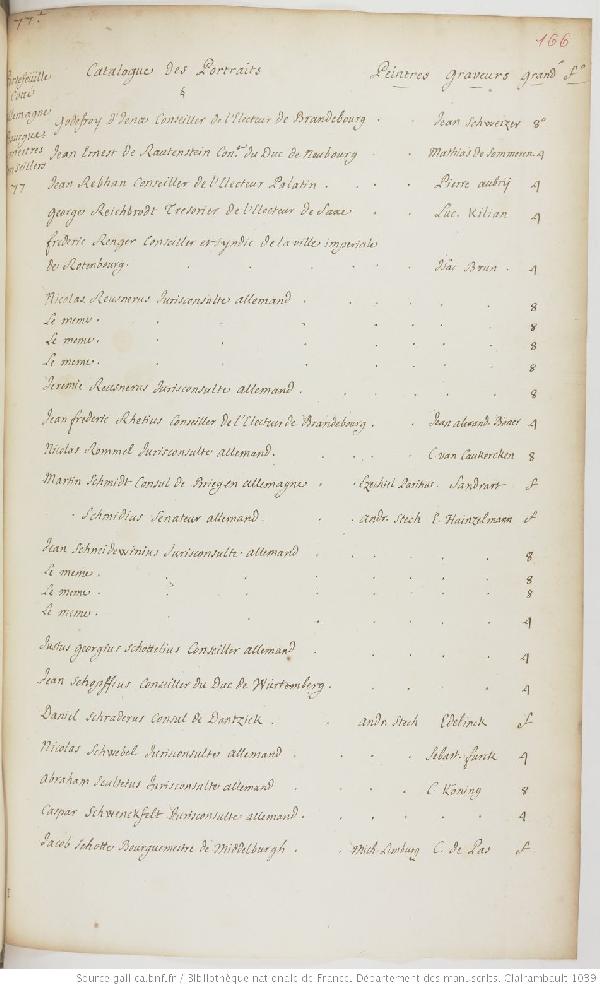 77.
166
Portefeuille
Cote
allemagne
Bourguem
ministres
conseillers
77
Catalogue Des Portraits Peintres Graveurs Grandr fo
§
Godefroy D'Iena Conseiller de l'Electeur de Brandebourg . . Jean Schweizer 8o
Jean Ernest de Rautenstein Con.er du Duc de Neubourg . . Mathias de Sommeren 4
Jean Rebhan Conseiller de l'Electeur Palatin . . . Pierre aubrij 4
George Reichbrodt Tresorier de l'Electeur de Saxe . . Luc. Kilian 4
frederic Renger Conseiller et Syndic de la ville imperiale
de Rotenbourg . . . . Isac Brun . 4
Nicolas Reusnerus Jurisconsulte allemand . . . . 8
Le meme . . . . . 8
Le meme . . . . . 8
Le meme . . . . . 8
Jeremie Reusnerus Jurisconsulte allemand . . . . 8
Jean frederic Rhetius Conseiller de l'Electeur de Brandebourg . . Jean alexand. Boner 4
Nicolas Rommel Jurisconsulte allemand . . . . C. van Caukercken 8
Martin Schmidt Consul de Brieg en allemagne . . Ezechiel Paritius . Sandrart f
. Schmidius Senateur allemand . . andr. Stech E. Hainzelmann f
Jean Schneidewinius Jurisconsulte allemand . . . . 8
Le meme . . . . . 8
Le meme . . . . . 8
Le meme . . . . . 4
Justus georgius Schottelius Conseiller allemand . . . . 4
Jean Schopffius Conseiller du Duc de Würtemberg . . . . 4
Daniel Schraderus Consul de Dantzick . . andr. Stech Edelinck f
Nicolas Schwebel Jurisconsulte allemand . . . Sebast. furck 4
Abraham Scultetus Jurisconsulte allemand . . . C. Koning 8
Caspar Schwenckfelt Jurisconsulte allemand . . . . 4
Jacob Schotte Bourguemestre de Middelburgh . . Mich Limburg C. de Pas f
Source gallica.bnf.fr / Bibliothèque nationale de France. Département des manuscrits. Clairambault 1039